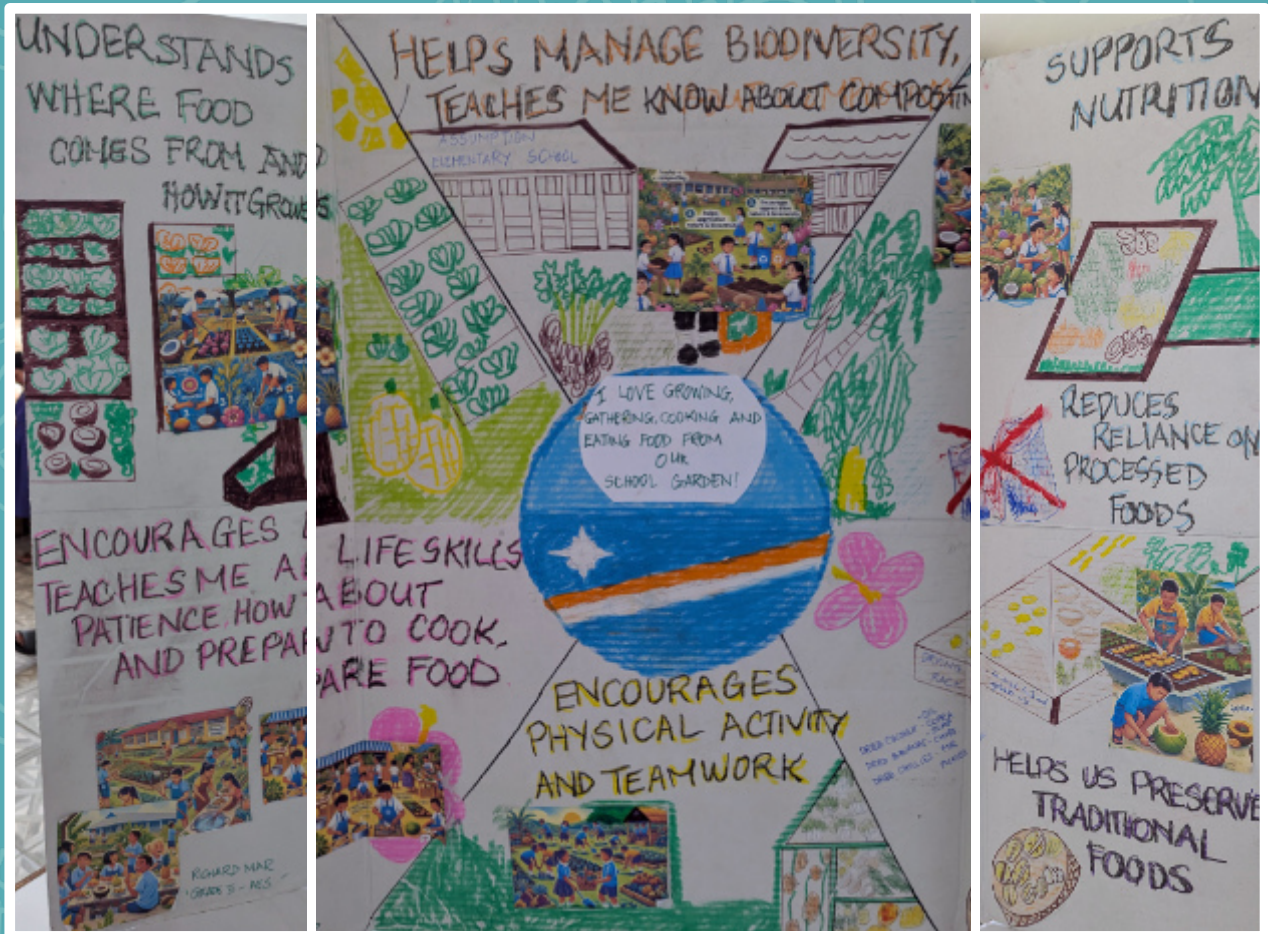 UNDERSTANDS
WHERE FOOD
COMES FROM AND
HOW IT GROWS
ENCOURAGES
TEACHES ME A
PATIENCE, HOW
AND PREPAR
RICHARD MAR
HELPS MANAGE BIODIVERSITY,
TEACHES ME KNOW ABOUT COMPOSTIN
ASSUMPTION
ELEMENTARY SCHOOL
I LOVE GROWING,
GATHERING, COOKING AND
EATING FOOD FROM
OUR
SCHOOL GARDEN!
LIFE SKILLS
ABOUT
TO COOK,
PARE FOOD
ENCOURAGES
PHYSICAL ACTIVITY
AND TEAMWORK
DRYING
RACK
SUPPORTS
NUTRITION
REDUCES
RELIANCE ON
PROCESSED
FOODS
HELPS US PRESERVE
TRADITIONAL
FOODS